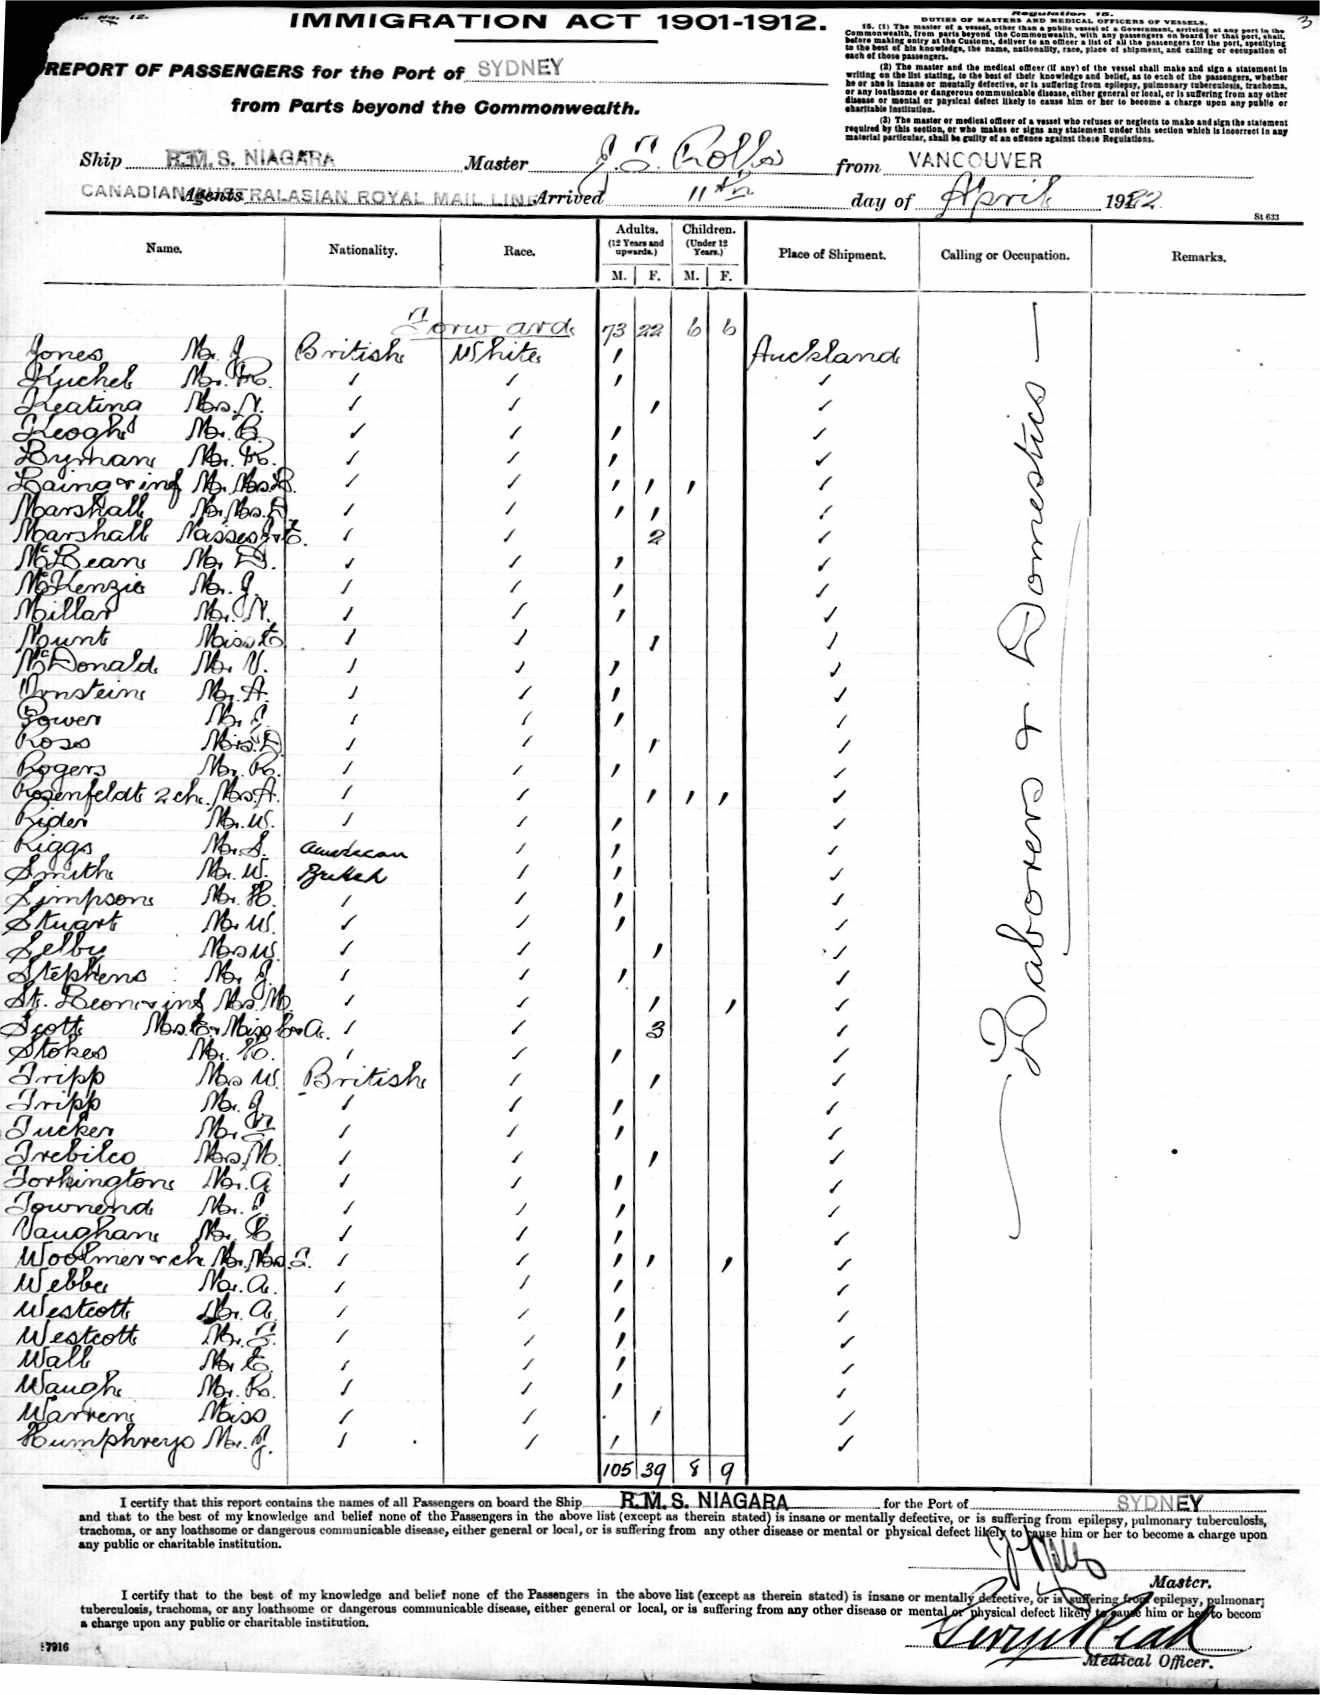 No. 12.
3
IMMIGRATION ACT 1901-1912.
REPORT OF PASSENGERS for the Port of SYDNEY
from Parts beyond the Commonwealth.
Regulation 15.
DUTIES OF MASTERS AND MEDICAL OFFICERS OF VESSELS.
15. (1) The master of a vessel, other than a public vessel of a Government, arriving at any port in the
Commonwealth, from parts beyond the Commonwealth, with any passengers on board for that port, shall,
before making entry at the Customs, deliver to an officer a list of all the passengers for the port, specifying
to the best of his knowledge, the name, nationality, race, place of shipment, and calling or occupation of
each of those passengers.
(2) The master and the medical officer (if any) of the vessel shall make and sign a statement in
writing on the list stating, to the best of their knowledge and belief, as to each of the passengers, whether
he or she is insane or mentally defective, or is suffering from epilepsy, pulmonary tuberculosis, trachoma,
or any loathsome or dangerous communicable disease, either general or local, or is suffering from any other
disease or mental or physical defect likely to cause him or her to become a charge upon any public or
charitable institution.
(3) The master or medical officer of a vessel who refuses or neglects to make and sign the statement
required by this section, or who makes or signs any statement under this section which is incorrect in any
material particular, shall be guilty of an offence against these Regulations.
Ship R.M.S. NIAGARA Master J. S. Rolls from VANCOUVER
CANADIAN AUSTRALASIAN ROYAL MAIL LINE Agents Arrived 11th day of April 1922
St 633
Name. Nationality. Race. Adults. (12 Years and upwards.) M. F. Children. (Under 12 Years.) M. F. Place of Shipment. Calling or Occupation. Remarks.
Forward 73 22 6 6
Jones Mr. J British White 1 Auckland
Kuchel Mr. R.
Keating Mrs. N.
Keogh Mr. B.
Lyman Mr. R.
Laing & inf Mr. Mrs. R.
Marshall Mr. Mrs. D
Marshall Misses J & E. 2
McBean Mr. D.
McKenzie Mr. J.
Millar Mr. N.
Mount Miss E.
McDonald Mr. V.
Ornstein Mr. A.
Power Mr. J.
Ross Miss D
Rogers Mr. R.
Rosenfeldt 2 ch. Mrs. A.
Rider Mr. W.
Riggs Mr. S. American
Smith Mr. W. British
Simpson Mr. H.
Stuart Mr. W.
Selby Mrs W.
Stephens Mr. J.
St. Leon & inf Mrs. M.
Scott Mrs. E. & Miss E & A. 3
Stokes Mr. H.
Tripp Mrs W. British
Tripp Mr. J
Tucker Mr.
Trebilco Mrs. M.
Torkington Mr. A
Townend Mr. J.
Vaughan Mr. C
Woolmer & ch Mr. Mrs. J.
Webber Mr. A.
Westcott Mr. A.
Westcott Mr. F.
Wall Mr. E.
Waugh Mr. R.
Warren Miss
Humphreys Mr. J.
105 39 8 9
Laborers & Domestics
I certify that this report contains the names of all Passengers on board the Ship R.M.S. NIAGARA for the Port of SYDNEY
and that to the best of my knowledge and belief none of the Passengers in the above list (except as therein stated) is insane or mentally defective, or is suffering from epilepsy, pulmonary tuberculosis,
trachoma, or any loathsome or dangerous communicable disease, either general or local, or is suffering from any other disease or mental or physical defect likely to cause him or her to become a charge upon
any public or charitable institution.
Master.
I certify that to the best of my knowledge and belief none of the Passengers in the above list (except as therein stated) is insane or mentally defective, or is suffering from epilepsy, pulmonary
tuberculosis, trachoma, or any loathsome or dangerous communicable disease, either general or local, or is suffering from any other disease or mental or physical defect likely to cause him or her to becom
a charge upon any public or charitable institution.
Medical Officer.
7916